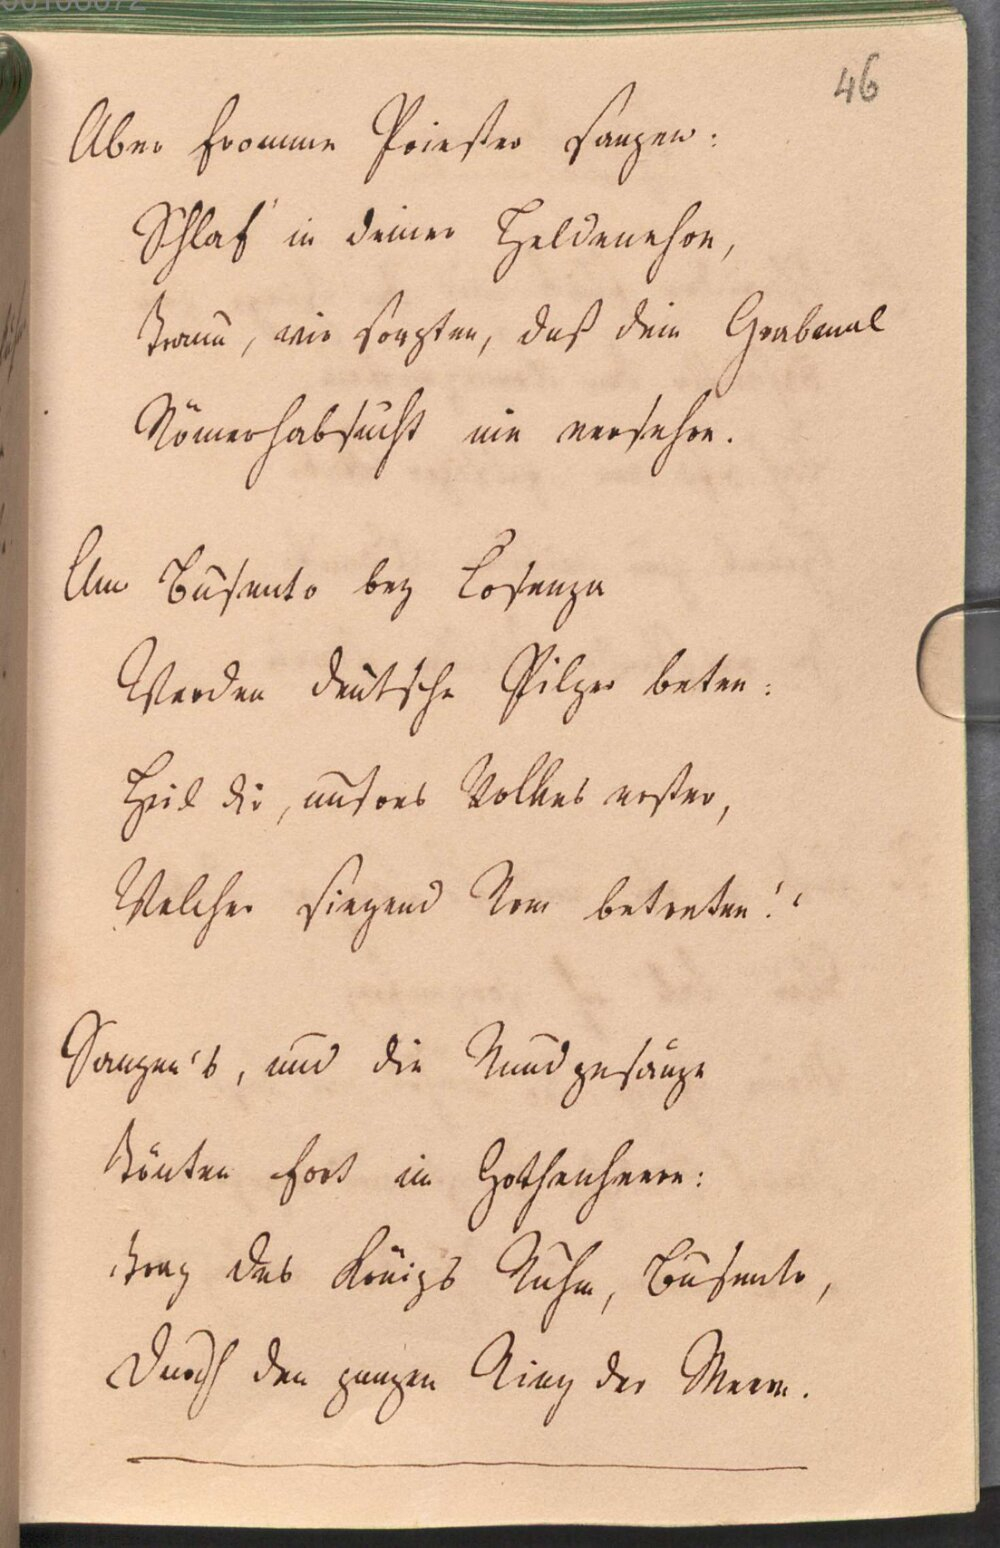 46
Aber fromme Priester sangen:
Schlaf' in deiner Heldenehre,
Traun, wir sorgten, daß dein Grabmal
Römerhabsucht nie versehre.
Am Busento bey Cosenza
Werden deutsche Pilger beten:
Heil dir, unsres Volkes erster,
Welcher siegend Rom betreten!"
Sangen's, und die Rundgesänge
Tönten fort im Gothenheere:
Trag des Königs Ruhm, Busento,
Durch den ganzen Ring der Meere.